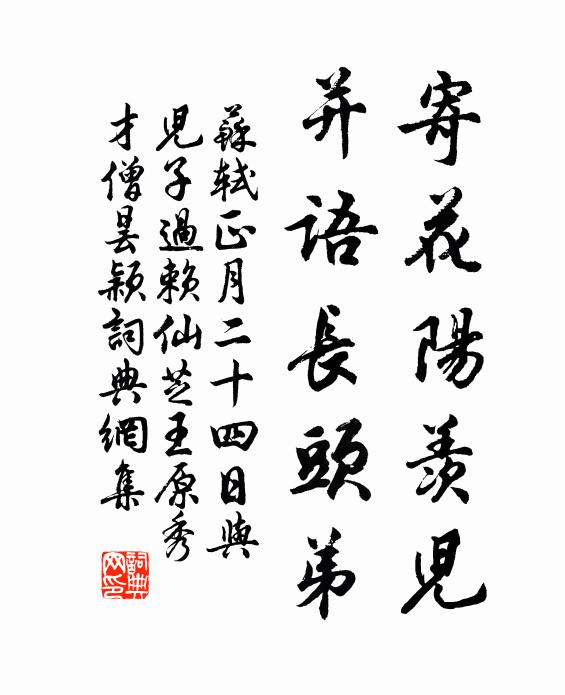 寄花陽羨兒
并語長頭弟
蘇軾正月二十四日與
兒子過賴仙芝王原秀
才僧曇穎詞典網集
詞典
网印